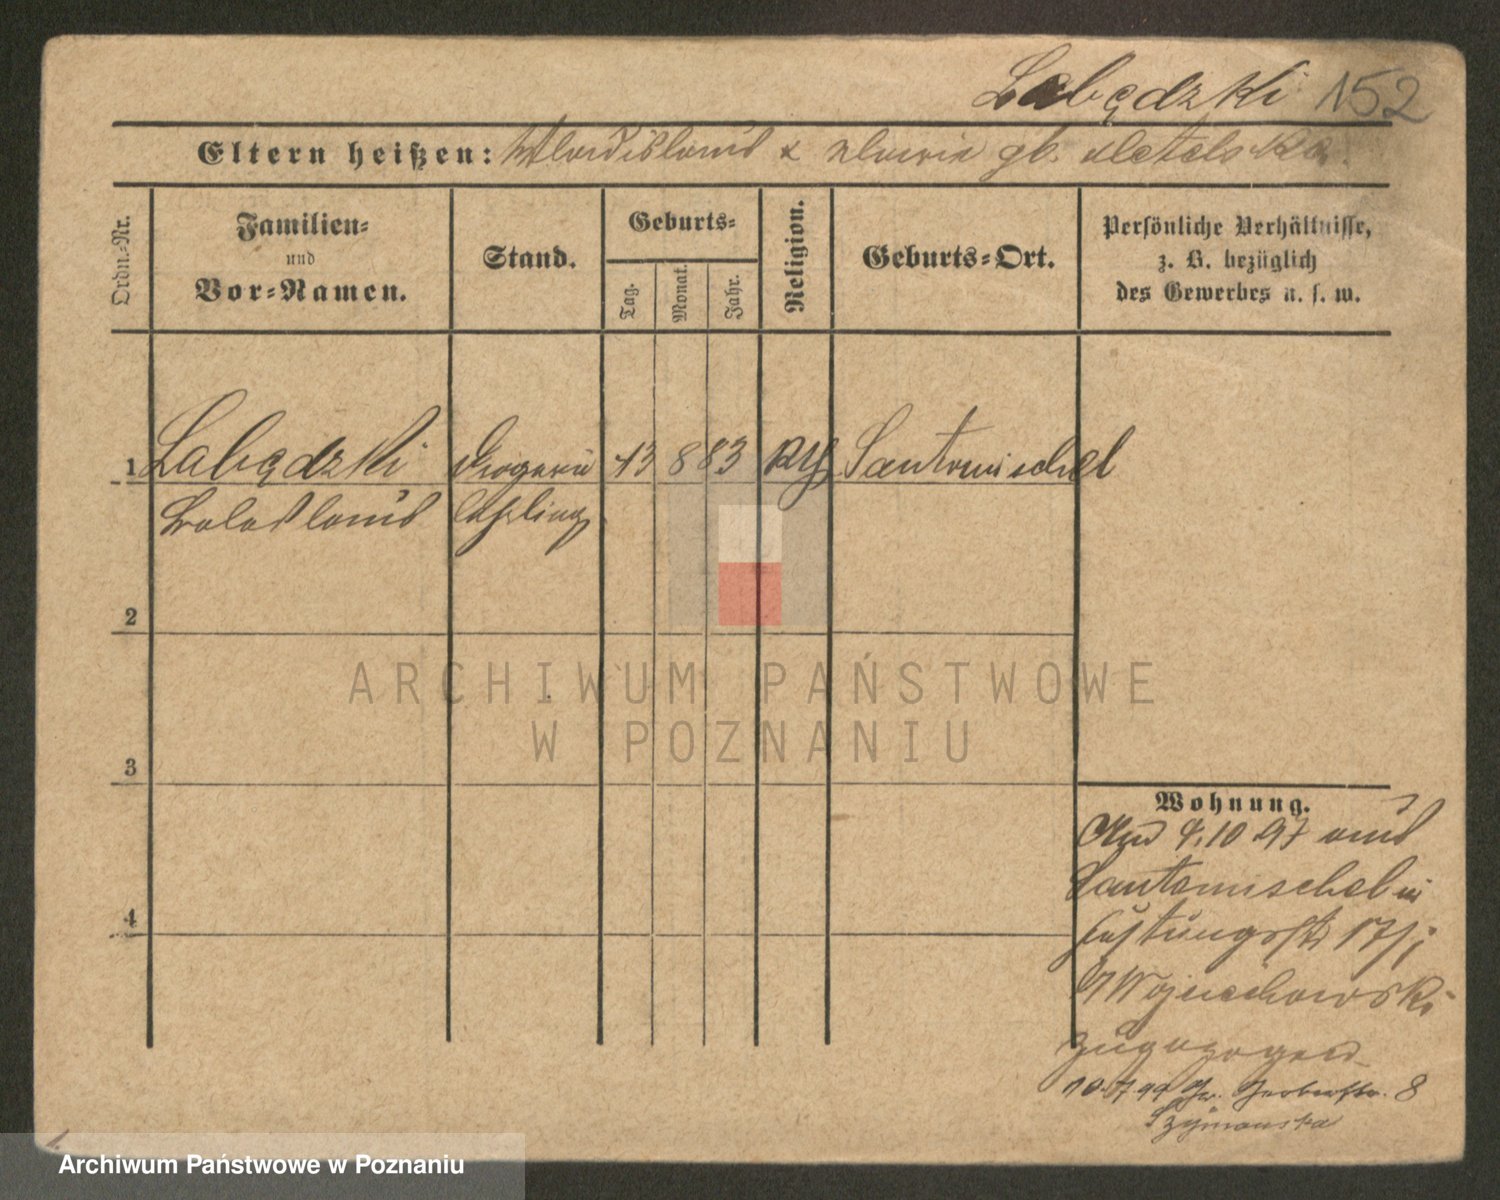 Labędzki 152
Eltern heißen: Wladislaus & Maria gb.
Ordn.-Nr.
Familien-
und
Vor-Namen.
Stand.
Geburts-
Tag.
Monat.
Jahr.
Religion.
Geburts-Ort.
Persönliche Verhältnisse,
z. B. bezüglich
des Gewerbes u. s. w.
1 Labędzki Drogerie 13 8 83 Kth Santomischel
Boleslaus Lehrling
2
ARCHIWUM PAŃSTWOWE
W POZNANIU
3
Wohnung.
4.10 97 aus
Santomischel in
17/
4
Wojciechowski
zugezogen
10.7 99 Gr. Gerberstr. 8
Szymanska
1.
Archiwum Państwowe w Poznaniu